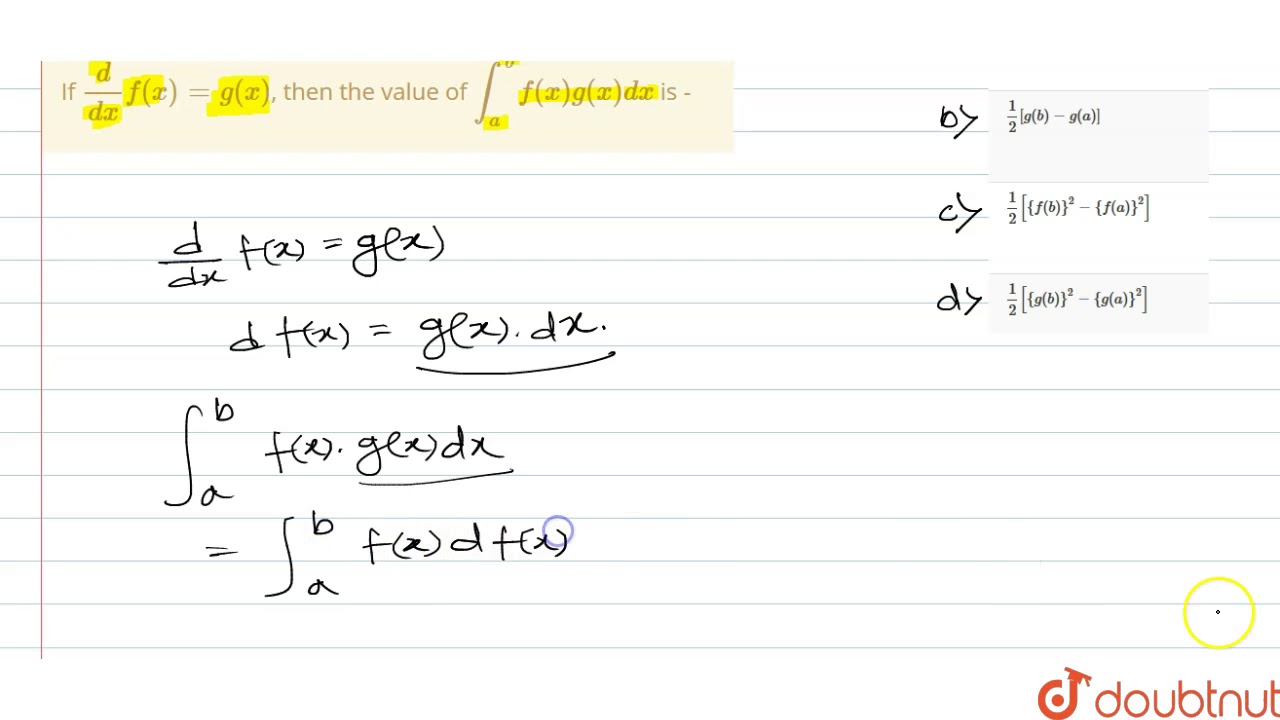 If d/dx f(x) = g(x), then the value of ∫_a^b f(x)g(x)dx is -
b> 1/2 [g(b) − g(a)]
c> 1/2 [{f(b)}² − {f(a)}²]
d> 1/2 [{g(b)}² − {g(a)}²]
d/dx f(x) = g(x)
d f(x) = g(x). dx.
∫_a^b f(x). g(x) dx
= ∫_a^b f(x) d f(x)
doubtnut